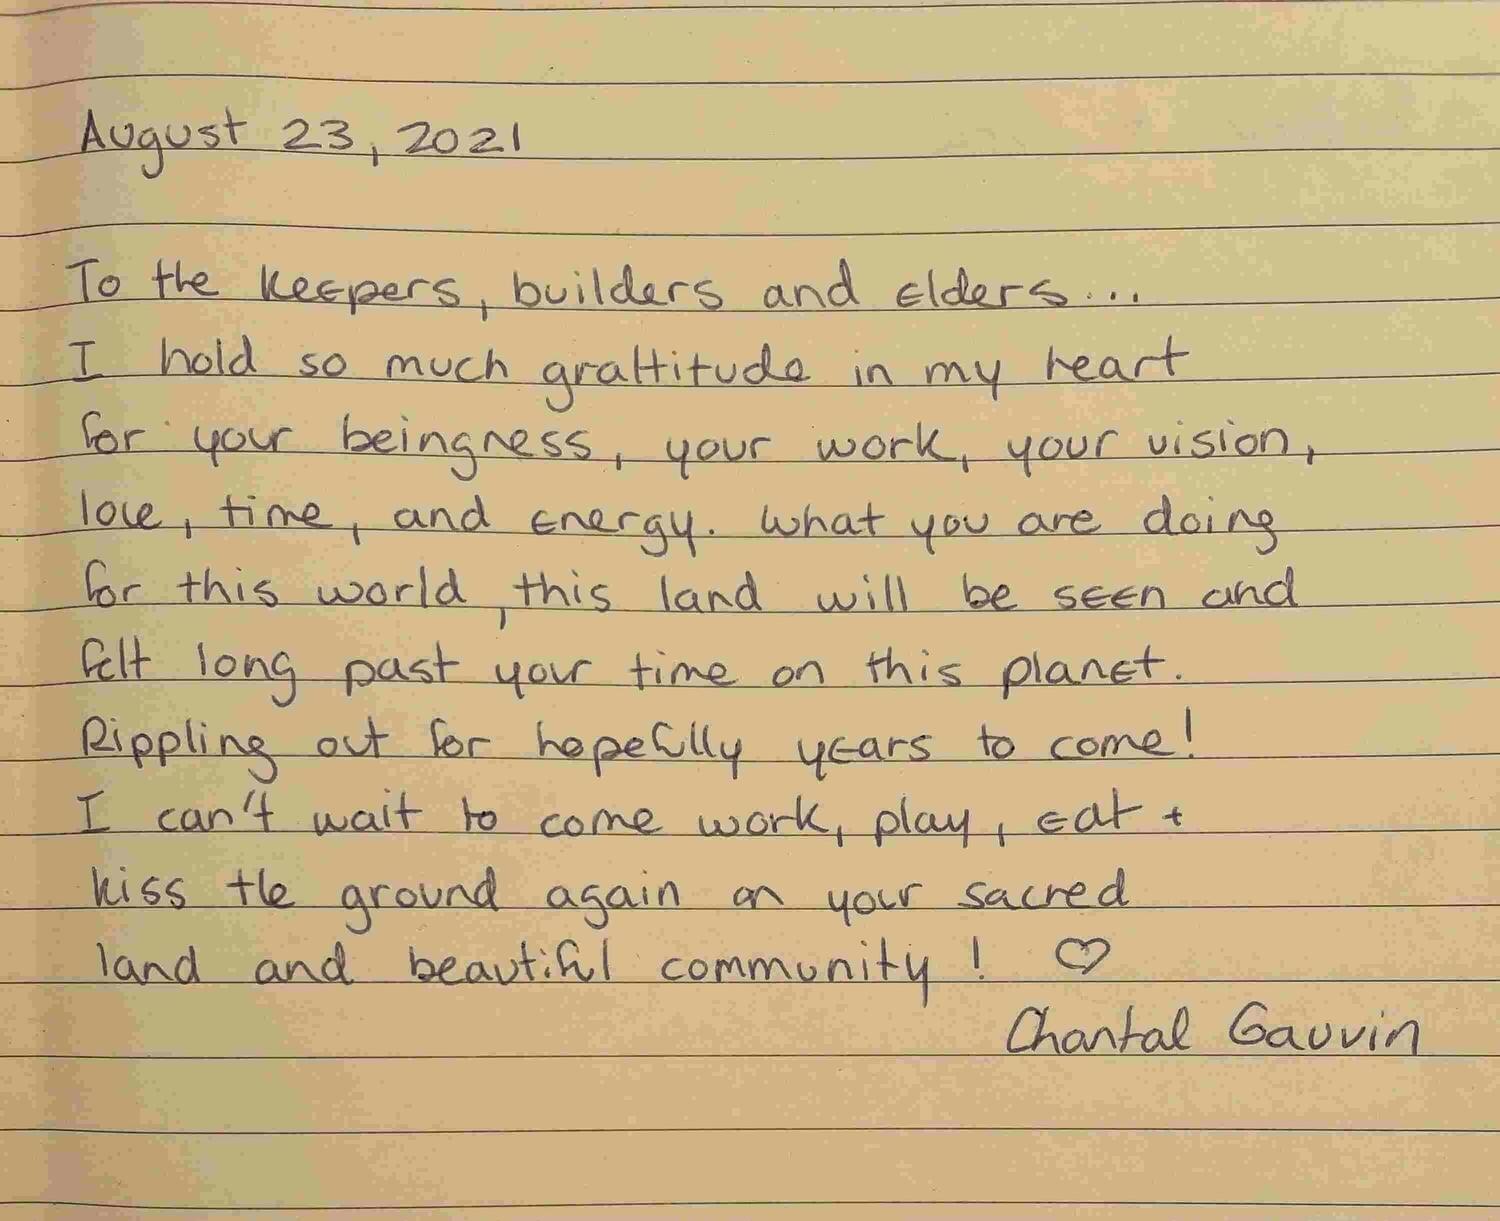 August 23, 2021
To the keepers, builders and elders...
I hold so much grattitude in my heart
for your beingness, your work, your vision,
love, time, and energy. What you are doing
for this world, this land will be seen and
felt long past your time on this planet.
Rippling out for hopefully years to come!
I can't wait to come work, play, eat +
kiss the ground again on your sacred
land and beautiful community! ♡
Chantal Gauvin